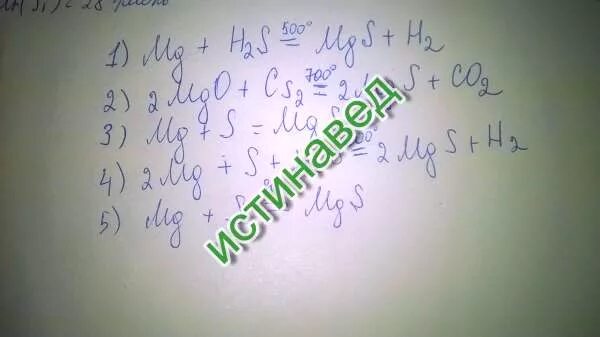 1) Mg + H2S 500° = MgS + H2
2) 2MgO + CS2 700° = 2 S + CO2
3) Mg + S = MgS
4) 2Mg + S + = 2MgS + H2
5) Mg + MgS
истинавед